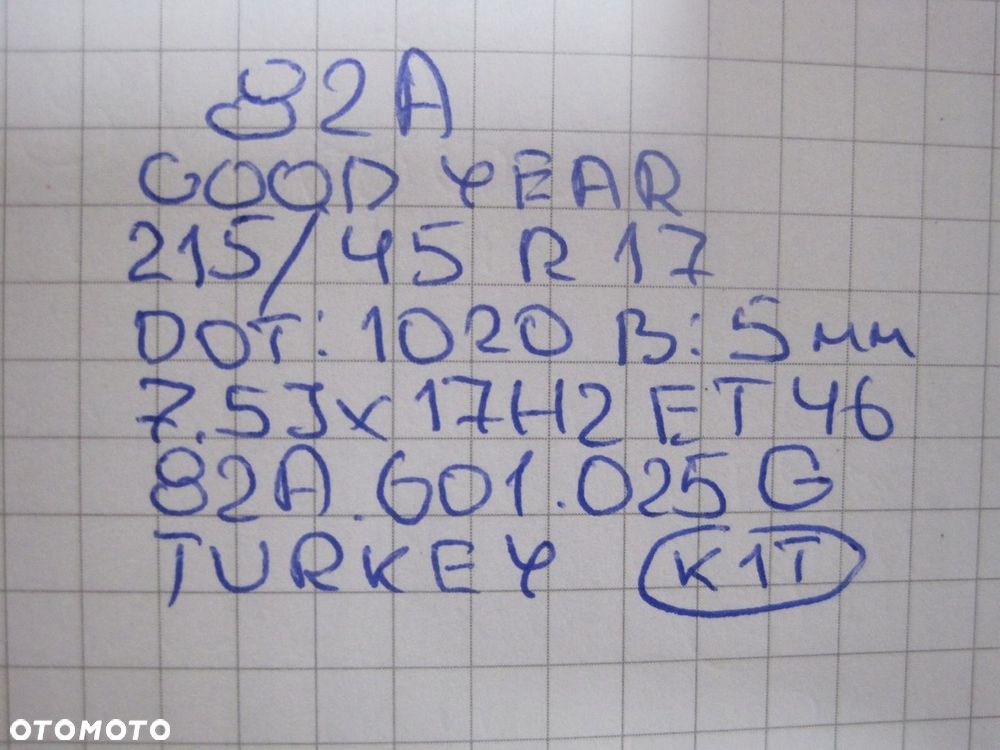 82A
GOOD YEAR
215/45 R 17
DOT: 1020 B: 5мм
7.5Jx17H2 ET46
82A.601.025 G
TURKEY K1T
OTOMOTO